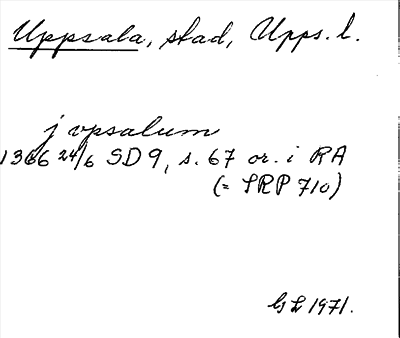 Uppsala, stad, Upps. l.
j vpsalum
1366 24/6 SD 9, s. 67 or. i RA
(= SRP 710)
GL 1971.